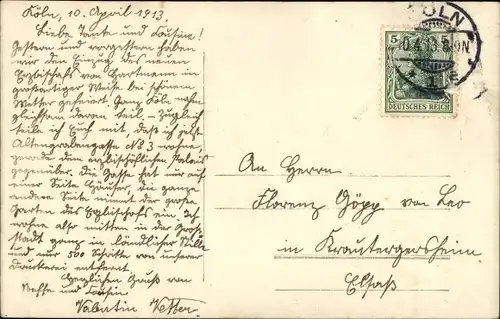 Köln, 10. April 1913.
Liebe Tante und Cousine!
Gestern und vorgestern haben
wir den Einzug des neuen
Erzbischofs von Hartmann in
großartiger Weise bei schönem
Wetter gefeiert. Ganz Köln nahm
gleichsam daran teil. – Zugleich
teile ich Euch mit, daß ich jetzt
Altengrabengasse No 3 wohne,
gerade dem erzbischöflichen Palais
gegenüber. Die Gasse hat nur auf
einer Seite Häuser, die ganze
andere Seite nimmt der große
Garten des Erzbischofs ein. Ich
wohne also mitten in der Groß-
stadt ganz in ländlicher Stille
und nur 500 Schritte von unserer
Druckerei entfernt.
Herzlichen Gruß von
Neffe und Cousin
Valentin Vetter.
CÖLN
10.4.13. 8-9N
* 1 *
5 5
DEUTSCHES REICH
An Herrn
Florenz Göpp von Leo
in Krautergersheim
Elsaß